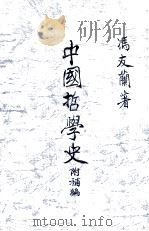 馮友蘭著
中國哲學史
附補編